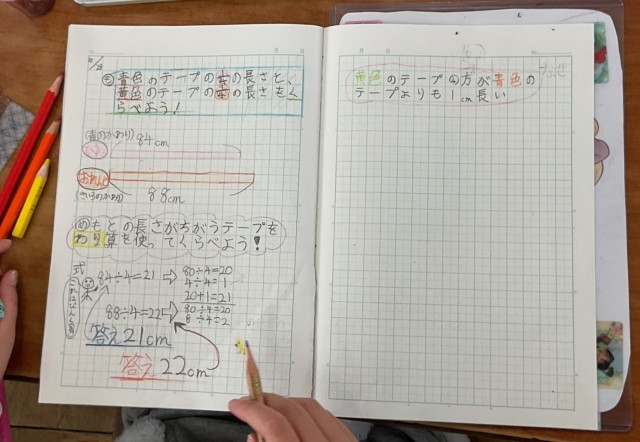 青色のテープの¼の長さと、
黄色のテープの¼の長さをく
らべよう！
(青のかわり)
84cm
おれんじ
(きいろのかわり)
88cm
めもとの長さがちがうテープを
わり算を使ってくらべよう！
式
84÷4=21 ⇨ 80÷4=20
4÷4=1
20+1=21
88÷4=22 ⇨ 80÷4=20
8÷4=2
答え21cm
答え22cm
黄色のテープの方が青色の
テープよりも1cm長い
なぜ